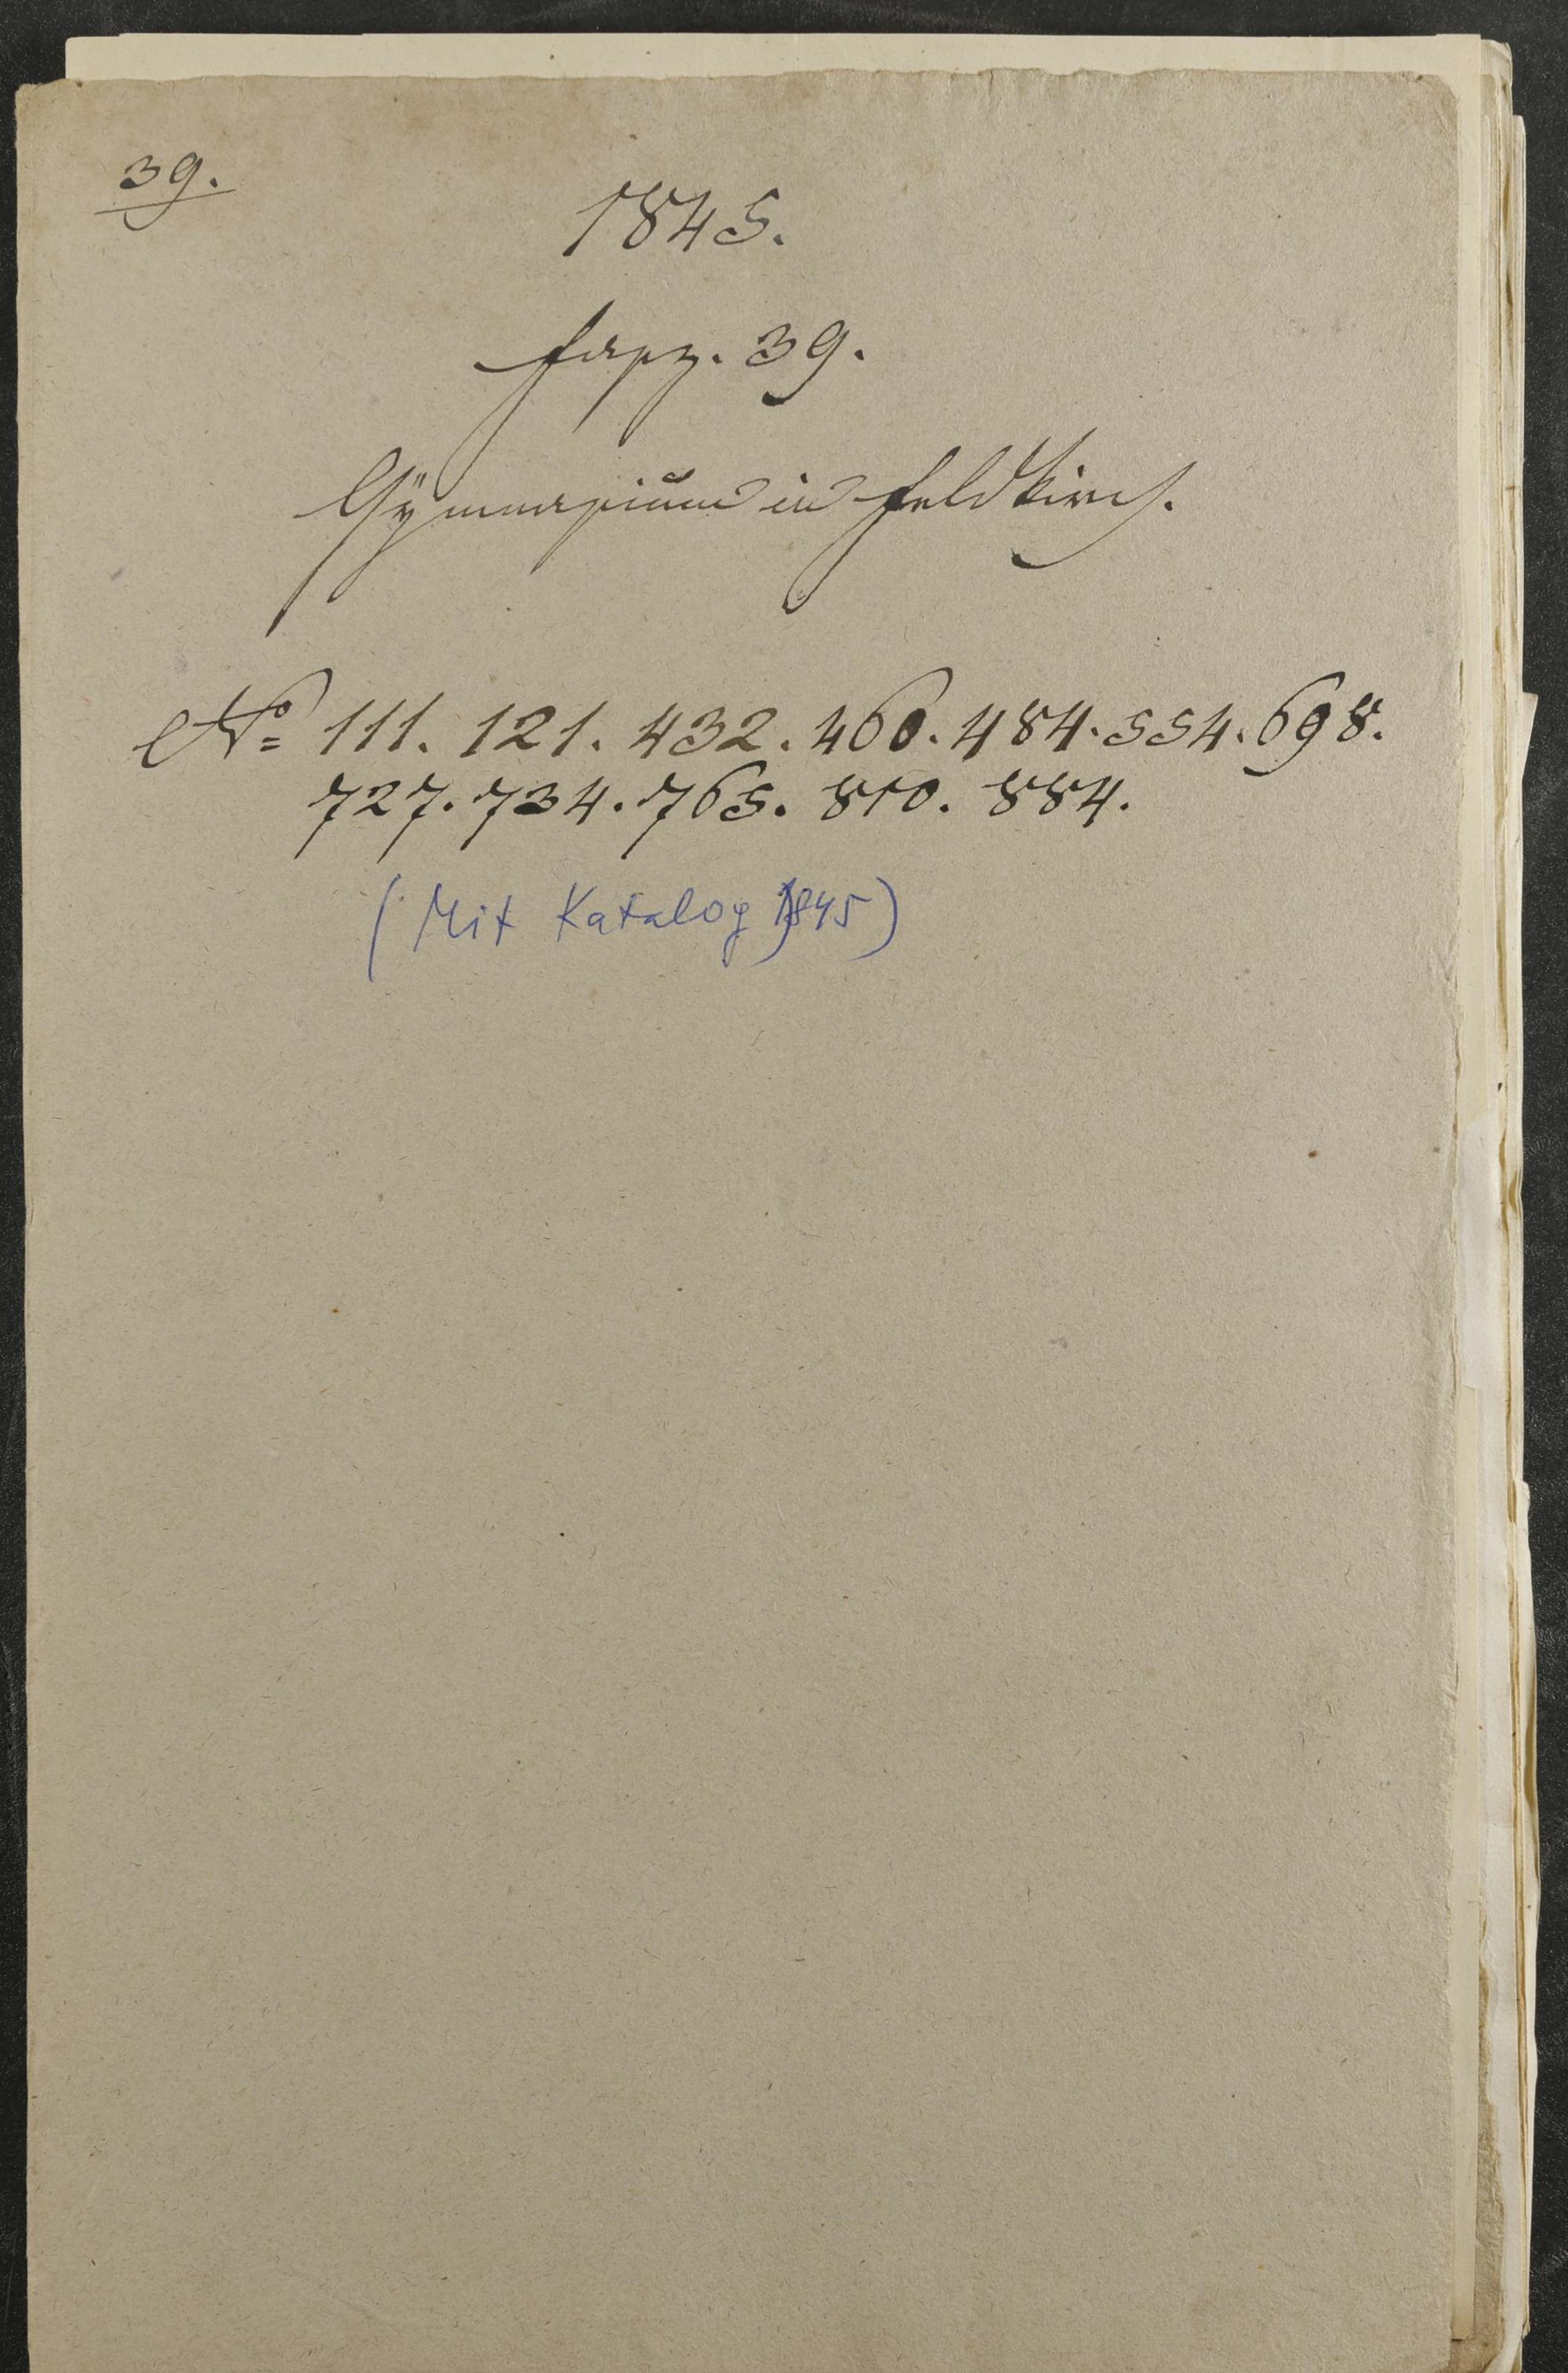 39.
1845.
Fasz. 39.
Gÿmnasium in Feldkirch.
No 111. 121. 432. 460. 484. 554. 698.
727. 734. 765. 810. 884.
(Mit Katalog 1845)